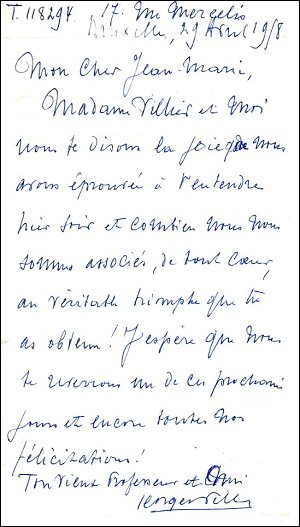 T. 118294. 17. rue Mergelo
Bruxelles, 29 Avril 1958
Mon Cher Jean-Marie,
Madame Villier et Moi
nous te disons la joie que nous
avons éprouvée à t'entendre
hier soir et combien nous nous
sommes associés, de tout cœur,
au véritable triomphe que tu
as obtenu! J'espère que nous
te reverrons un de ces prochains
jours et encore toutes nos
félicitations!
Ton vieux Professeur et Ami
Georges Villier